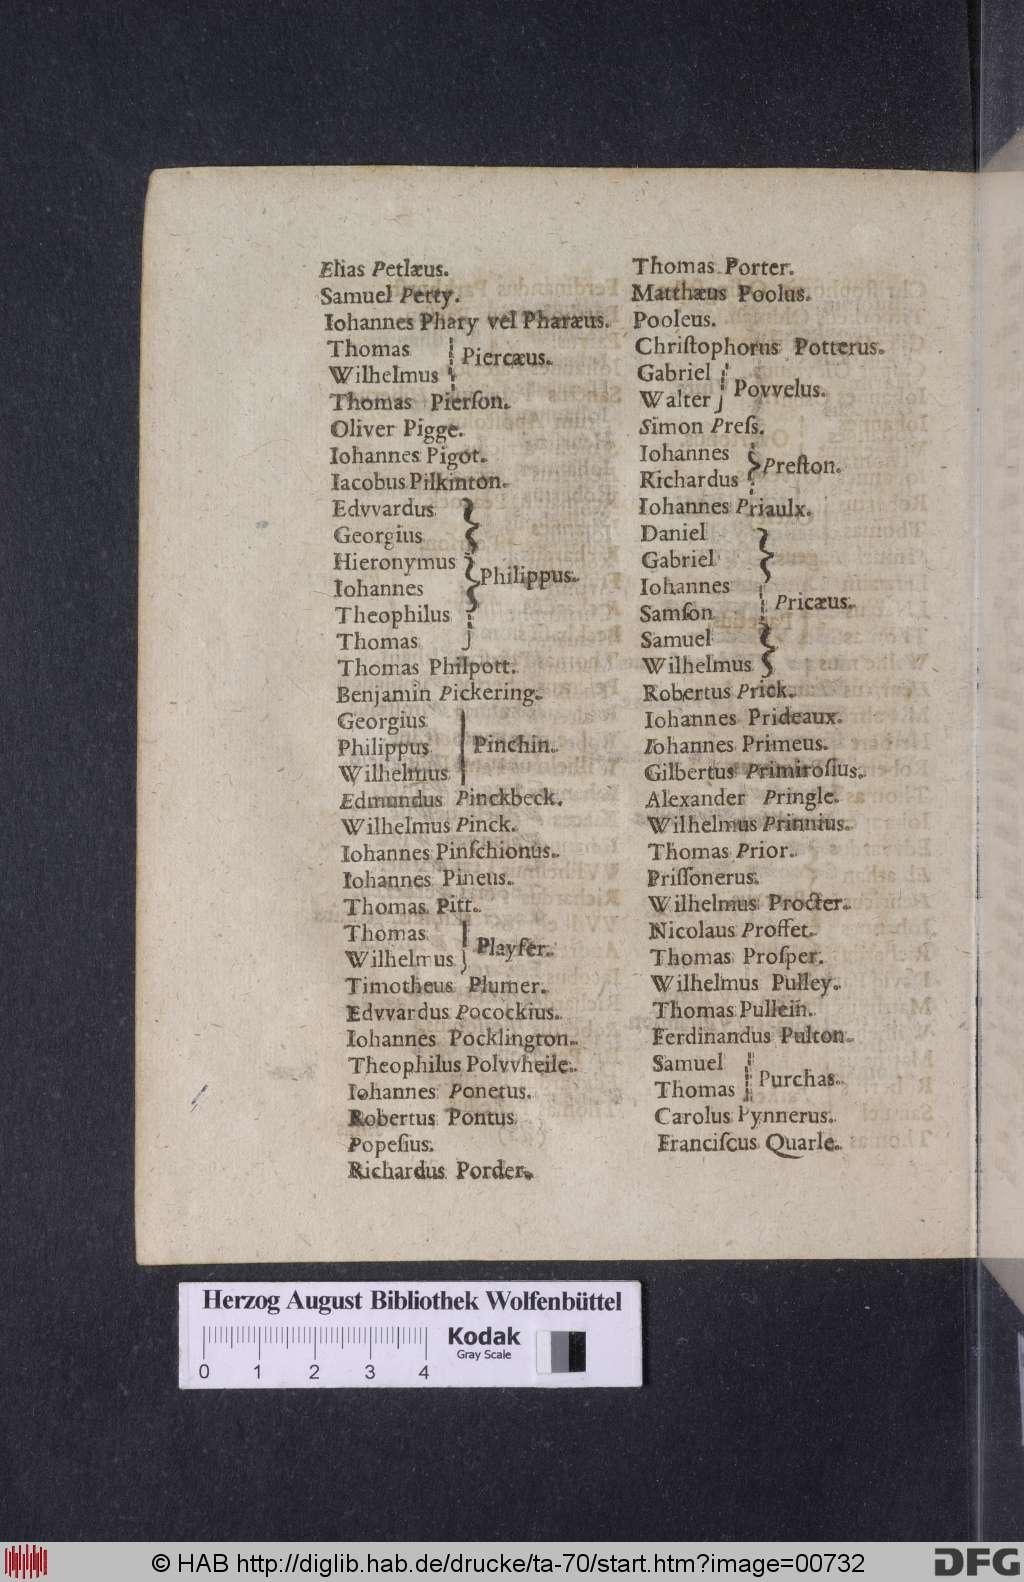 Elias Petlæus.
Samuel Petty.
Iohannes Phary vel Pharæus.
Thomas
Wilhelmus
Piercæus.
Thomas Pierſon.
Oliver Pigge.
Iohannes Pigot.
Iacobus Pilkinton.
Edvvardus
Georgius
Hieronymus
Iohannes
Theophilus
Thomas
Philippus.
Thomas Philpott.
Benjamin Pickering.
Georgius
Philippus
Wilhelmus
Pinchin.
Edmundus Pinckbeck.
Wilhelmus Pinck.
Iohannes Pinſchionus.
Iohannes Pineus.
Thomas Pitt.
Thomas
Wilhelmus
Playfer.
Timotheus Plumer.
Edvvardus Pocockius.
Iohannes Pocklington.
Theophilus Polvvheile.
Iohannes Ponetus.
Robertus Pontus
Popeſius.
Richardus Porder.
Thomas Porter.
Matthæus Poolus.
Pooleus.
Chriſtophorus Potterus.
Gabriel
Walter
Povvelus.
Simon Preſs.
Iohannes
Richardus
Preſton.
Iohannes Priaulx.
Daniel
Gabriel
Iohannes
Samſon
Samuel
Wilhelmus
Pricæus.
Robertus Prick.
Iohannes Prideaux.
Iohannes Primeus.
Gilbertus Primiroſius.
Alexander Pringle.
Wilhelmus Prinnius.
Thomas Prior.
Priſſonerus.
Wilhelmus Procter.
Nicolaus Proffet.
Thomas Proſper.
Wilhelmus Pulley.
Thomas Pullein.
Ferdinandus Pulton.
Samuel
Thomas
Purchas.
Carolus Pynnerus.
Franciſcus Quarle.
Herzog August Bibliothek Wolfenbüttel
Kodak
Gray Scale
0 1 2 3 4
© HAB http://diglib.hab.de/drucke/ta-70/start.htm?image=00732
DFG